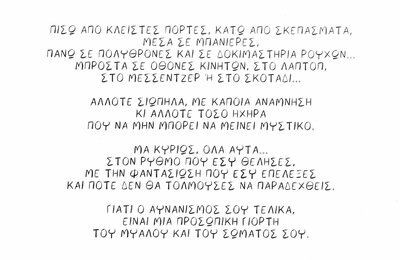 ΠΙΣΩ ΑΠΟ ΚΛΕΙΣΤΕΣ ΠΟΡΤΕΣ, ΚΑΤΩ ΑΠΟ ΣΚΕΠΑΣΜΑΤΑ,
ΜΕΣΑ ΣΕ ΜΠΑΝΙΕΡΕΣ,
ΠΑΝΩ ΣΕ ΠΟΛΥΘΡΟΝΕΣ ΚΑΙ ΣΕ ΔΟΚΙΜΑΣΤΗΡΙΑ ΡΟΥΧΩΝ...
ΜΠΡΟΣΤΑ ΣΕ ΟΘΟΝΕΣ ΚΙΝΗΤΩΝ, ΣΤΟ ΛΑΠΤΟΠ,
ΣΤΟ ΜΕΣΣΕΝΤΖΕΡ Ή ΣΤΟ ΣΚΟΤΑΔΙ...
ΑΛΛΟΤΕ ΣΙΩΠΗΛΑ, ΜΕ ΚΑΠΟΙΑ ΑΝΑΜΝΗΣΗ
ΚΙ ΑΛΛΟΤΕ ΤΟΣΟ ΗΧΗΡΑ
ΠΟΥ ΝΑ ΜΗΝ ΜΠΟΡΕΙ ΝΑ ΜΕΙΝΕΙ ΜΥΣΤΙΚΟ.
ΜΑ ΚΥΡΙΩΣ, ΟΛΑ ΑΥΤΑ...
ΣΤΟΝ ΡΥΘΜΟ ΠΟΥ ΕΣΥ ΘΕΛΗΣΕΣ,
ΜΕ ΤΗΝ ΦΑΝΤΑΣΙΩΣΗ ΠΟΥ ΕΣΥ ΕΠΕΛΕΞΕΣ
ΚΑΙ ΠΟΤΕ ΔΕΝ ΘΑ ΤΟΛΜΟΥΣΕΣ ΝΑ ΠΑΡΑΔΕΧΘΕΙΣ.
ΓΙΑΤΙ Ο ΑΥΝΑΝΙΣΜΟΣ ΣΟΥ ΤΕΛΙΚΑ,
ΕΙΝΑΙ ΜΙΑ ΠΡΟΣΩΠΙΚΗ ΓΙΟΡΤΗ
ΤΟΥ ΜΥΑΛΟΥ ΚΑΙ ΤΟΥ ΣΩΜΑΤΟΣ ΣΟΥ.